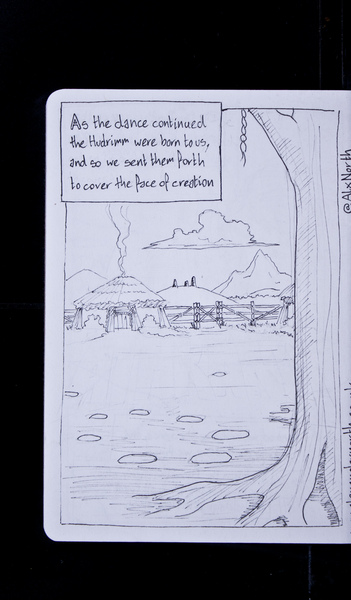 As the dance continued
the Hudrimm were born to us,
and so we sent them forth
to cover the face of creation
@AlxNorth